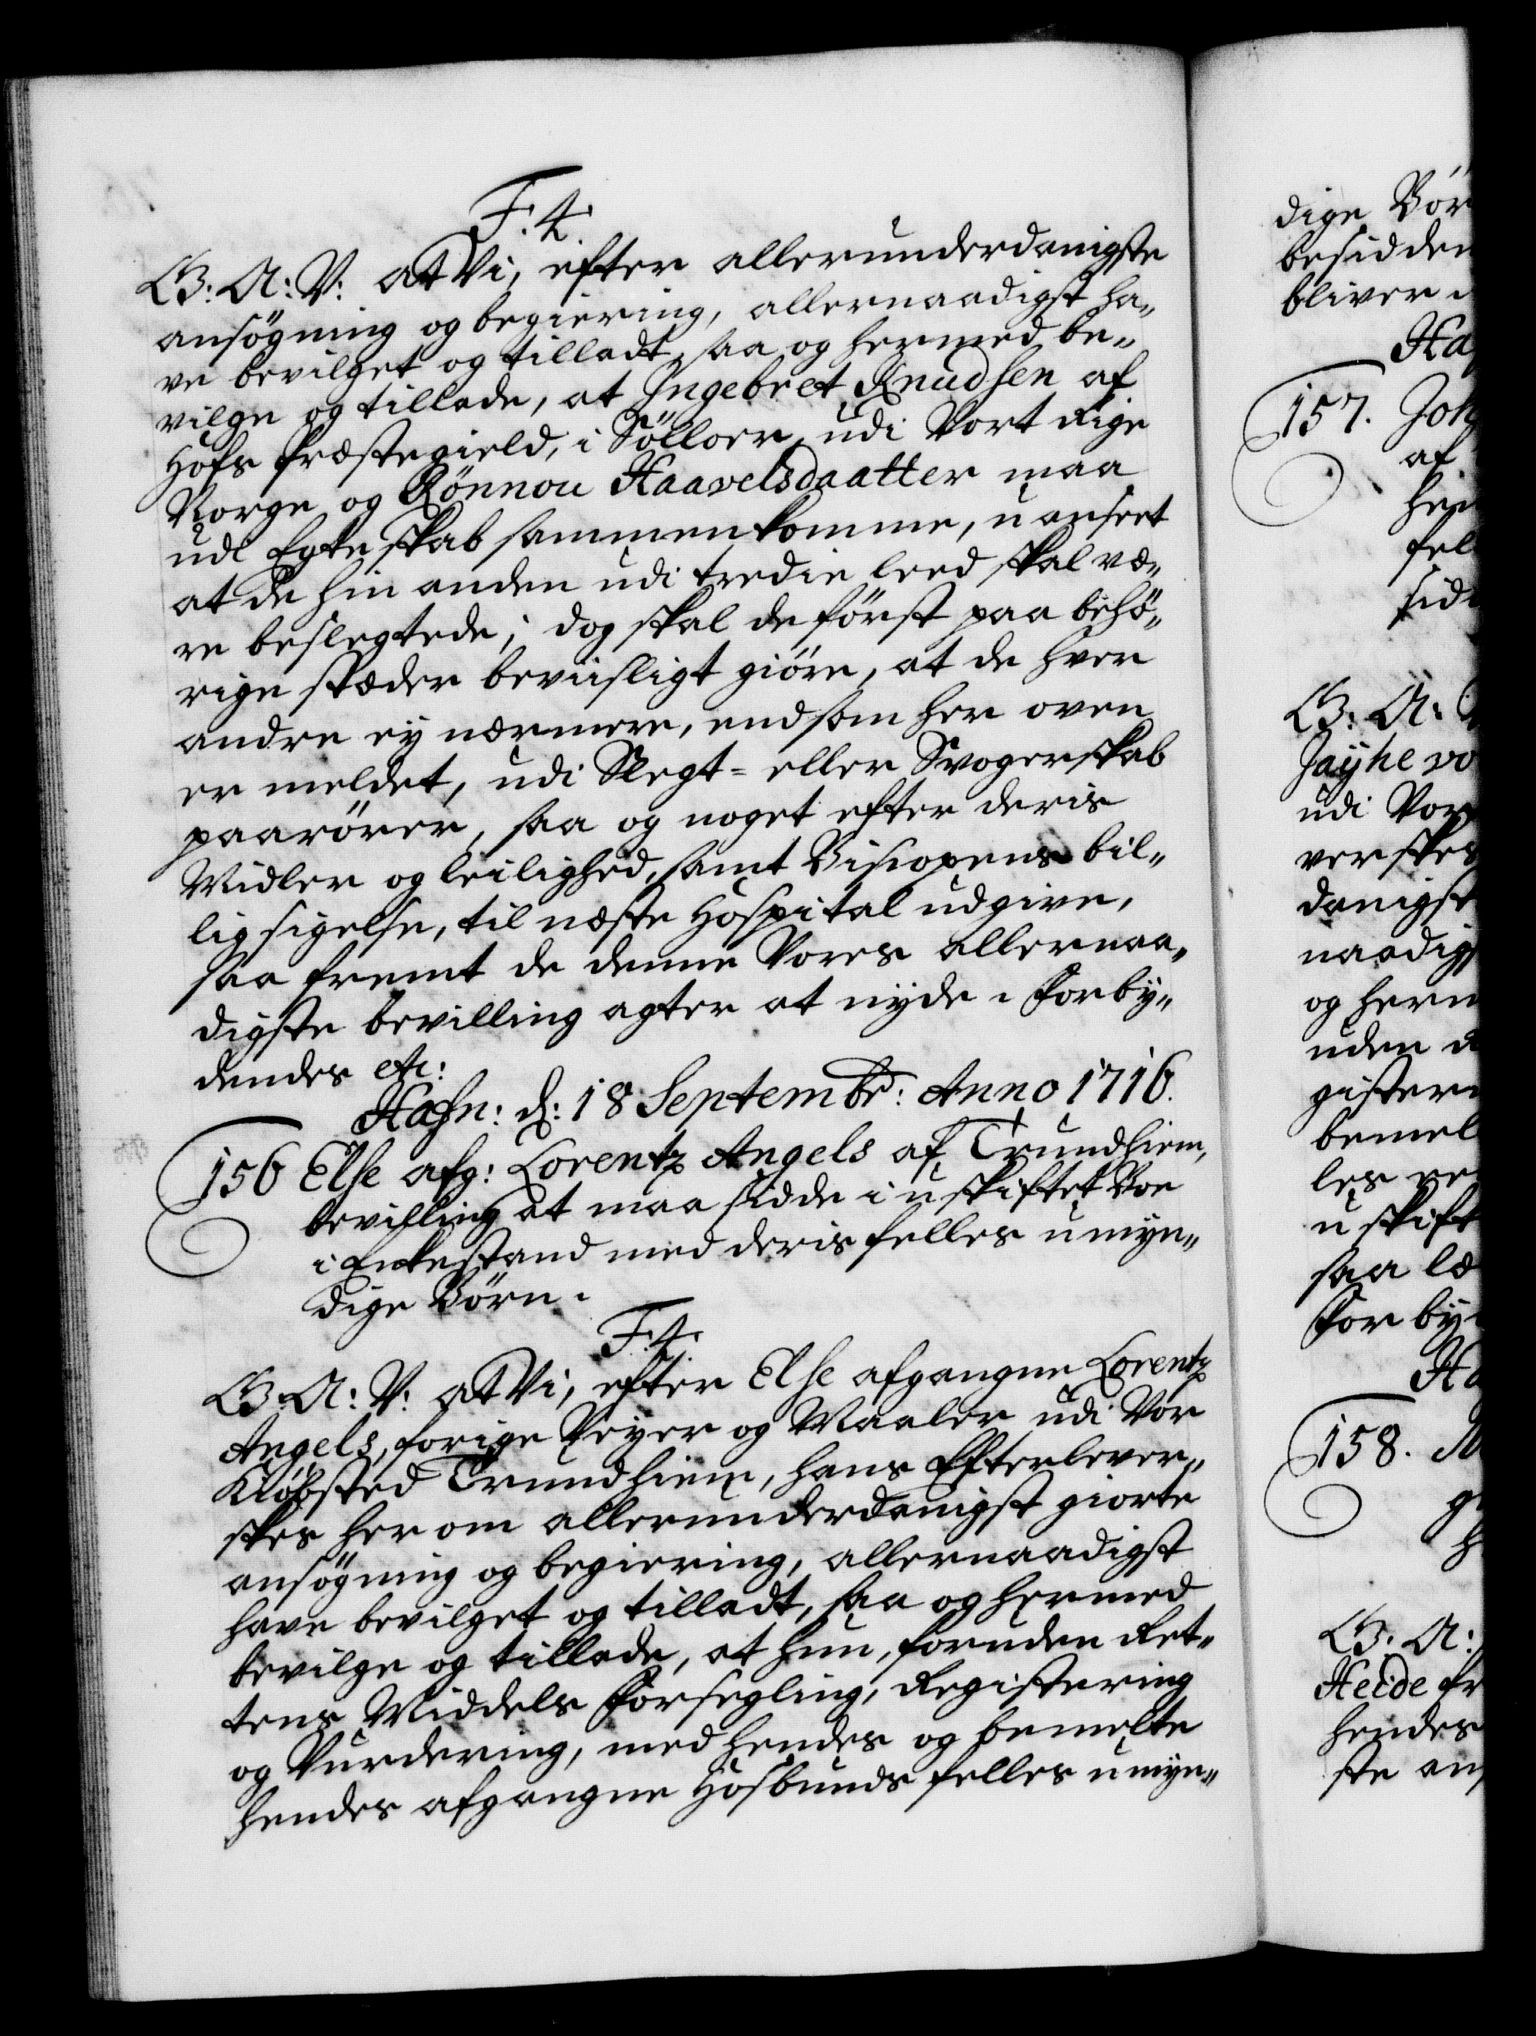 F. 4.
G: A: V: at Vi, efter allerunderdanigste
ansøgning og begiering, allernaadigst ha-
ve bevilget og tilladt, saa og hermed be-
vilge og tillade, at Ingebret Knudsen af
Hofs Præstegield, i Sölloer, udi Vort Rige
Norge og Rönnou Haavelsdaatter maa
udi Egteskab sammenkomme, uanseet
at de hin anden udi tredie leed skal væ-
re beslegtede; dog skal de først paa behö-
rige stæder beviisligt giöre, at de hver
andre ey nærmere, end som her oven
er meldet, udi Slegt- eller Svogerskab
paarörer, saa og noget efter deris
Midler og leilighed, samt Biscopens bil-
lig sigelse, til næste Hospital udgive,
saa fremt de denne Vores allernaa-
digste bevilling agter at nyde. Forby-
dendes etc:
Hafn: d: 18 Septembr: Anno 1716.
156 Else afg: Lorentz Angels af Trundhiem,
bevilling at maa sidde i uskiftet Boe
i Enkestand med deris felles umyn-
dige Börn.
F. 4.
G: A: V: at Vi, efter Else afgangne Lorentz
Angels, forige Veyer og Maaler udi Vor
Kiöbsted Trundhiem, hans Efterlever-
skes her om allerunderdanigst giorte
ansøgning og begiering, allernaadigst
have bevilget og tilladt, saa og hermed
bevilge og tillade, at hun, foruden Ret-
tens Middels Forsegling, Registering
og Vurdering, med hendes og bemelte
hendes afgangne Hosbunds felles umyn-
dige Bör
besidden
bliver
Ha
157. Joh
af
hen
fel
sid
G: A:
Jayhe vo
udi Vor
verskes
danigst
naadigs
og herm
uden
gisteri
bemel
les
uskift
saa læ
For by
Ha
158.
G: A:
Heide fr
hendes
ste an